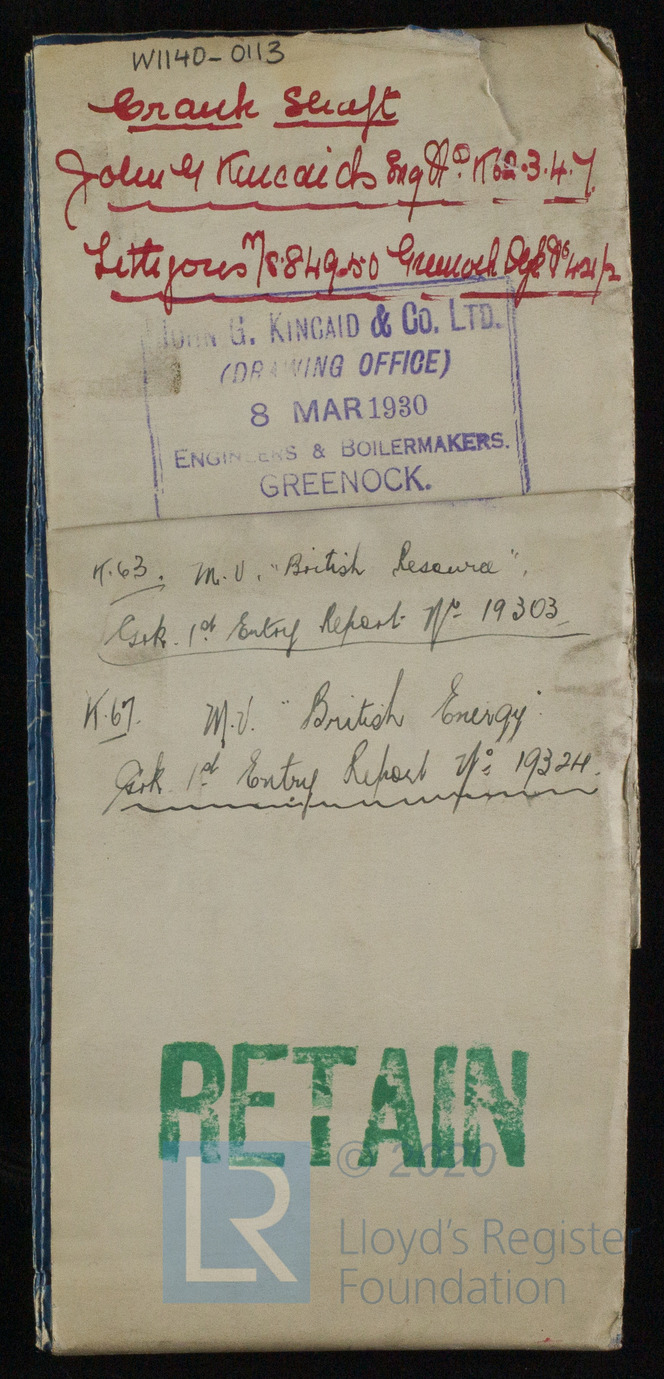 W1140-0113
Crank Shaft
John G Kincaids Eng Nº K62.3.4.7
Lithgows 849-50 Greenock
JOHN G. KINCAID & CO. LTD.
(DRAWING OFFICE)
8 MAR 1930
ENGINEERS & BOILERMAKERS.
GREENOCK.
K.63. M.V. "British Resource",
Grk. 1st Entry Report Nº 19303
K.67. M.V. "British Energy"
Grk. 1st Entry Report Nº 19324.
RETAIN
© 2020
LR
Lloyd's Register
Foundation